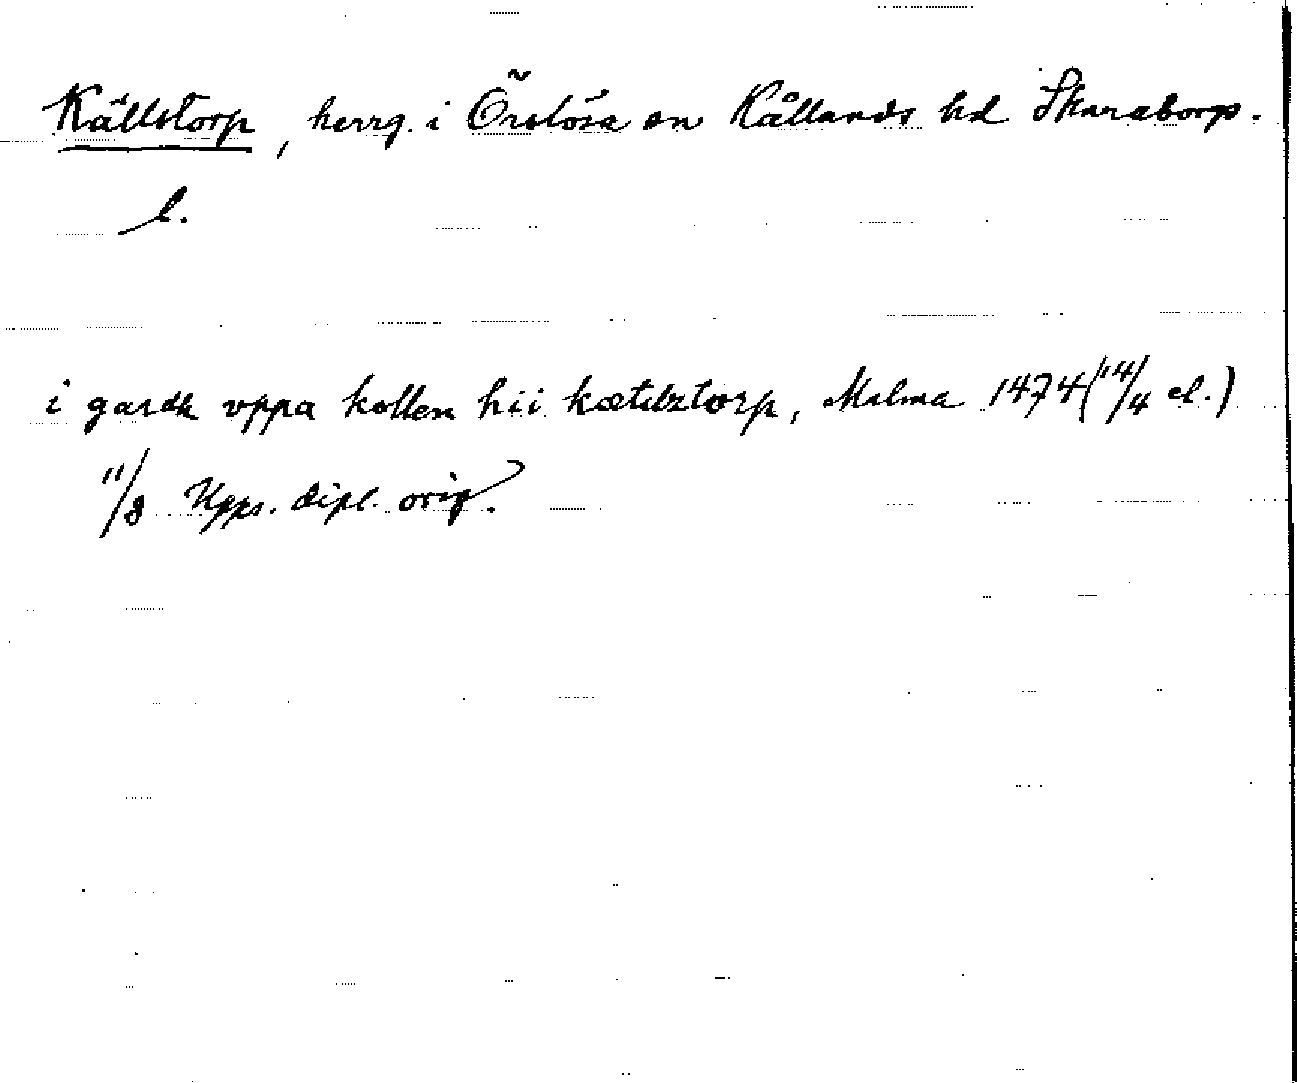 Källstorp, herrg. i Örslösa sn Kållands hd Skaraborgs.
l.
i gardh vppa kollen hii kætilztorp, Malma 1474 (14/4 el.)
11/8 Upps. dipl. orig.